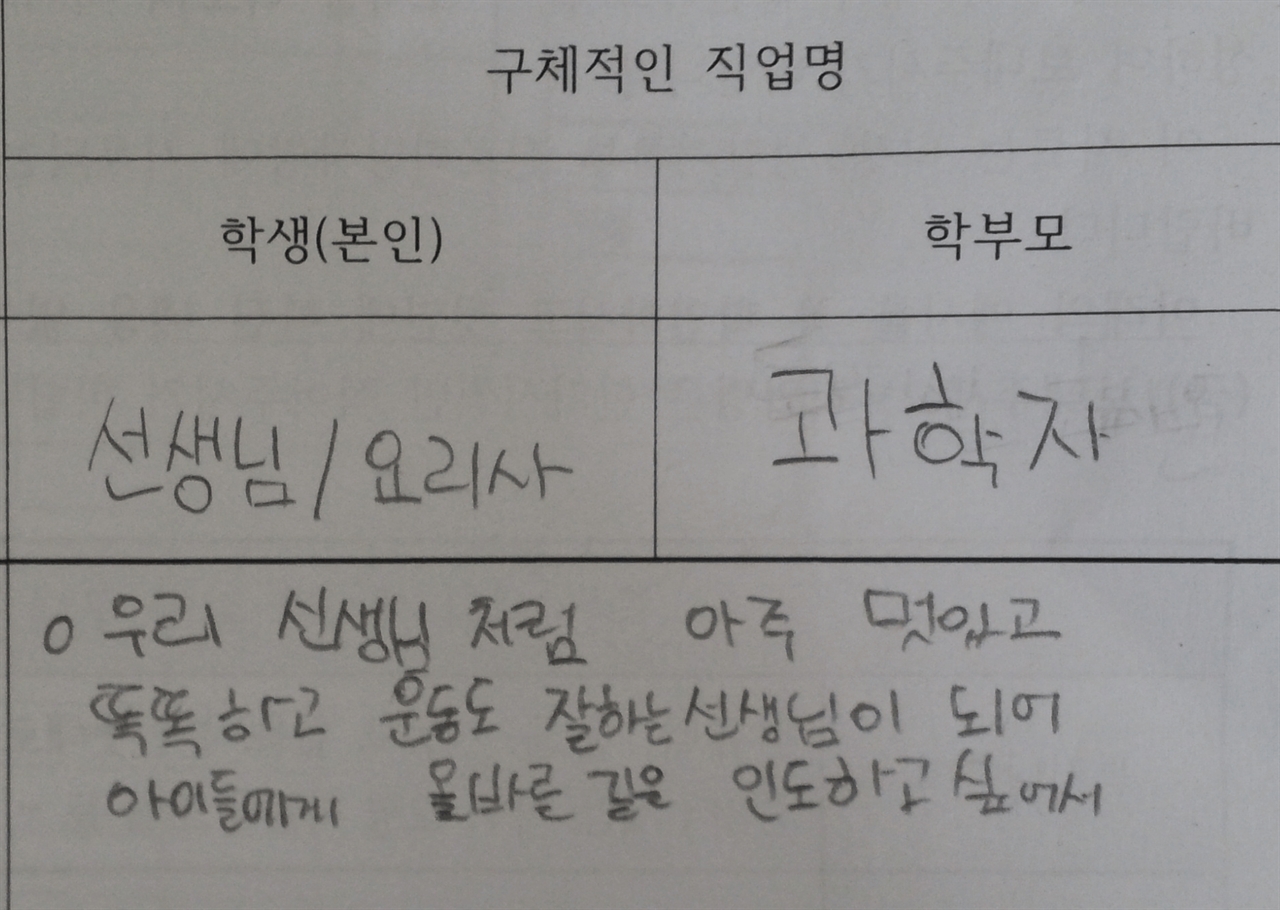 구체적인 직업명
학생(본인) 학부모
선생님/요리사 과학자
o 우리 선생님처럼 아주 멋있고
똑똑하고 운동도 잘하는 선생님이 되어
아이들에게 올바른 길을 인도하고 싶어서